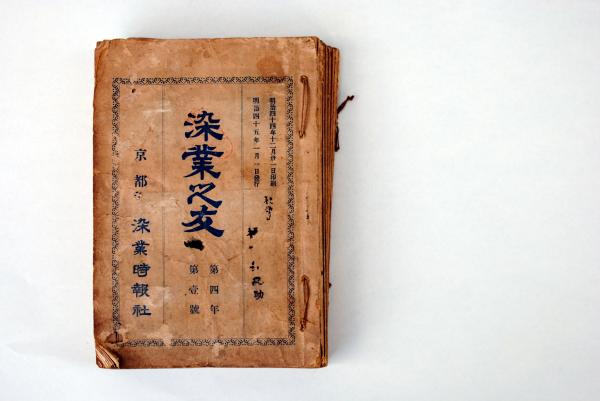 明治四十四年十二月廿一日印刷
明治四十五年一月一日發行
染業之友
第四年
第壹號
京都
染業時報社